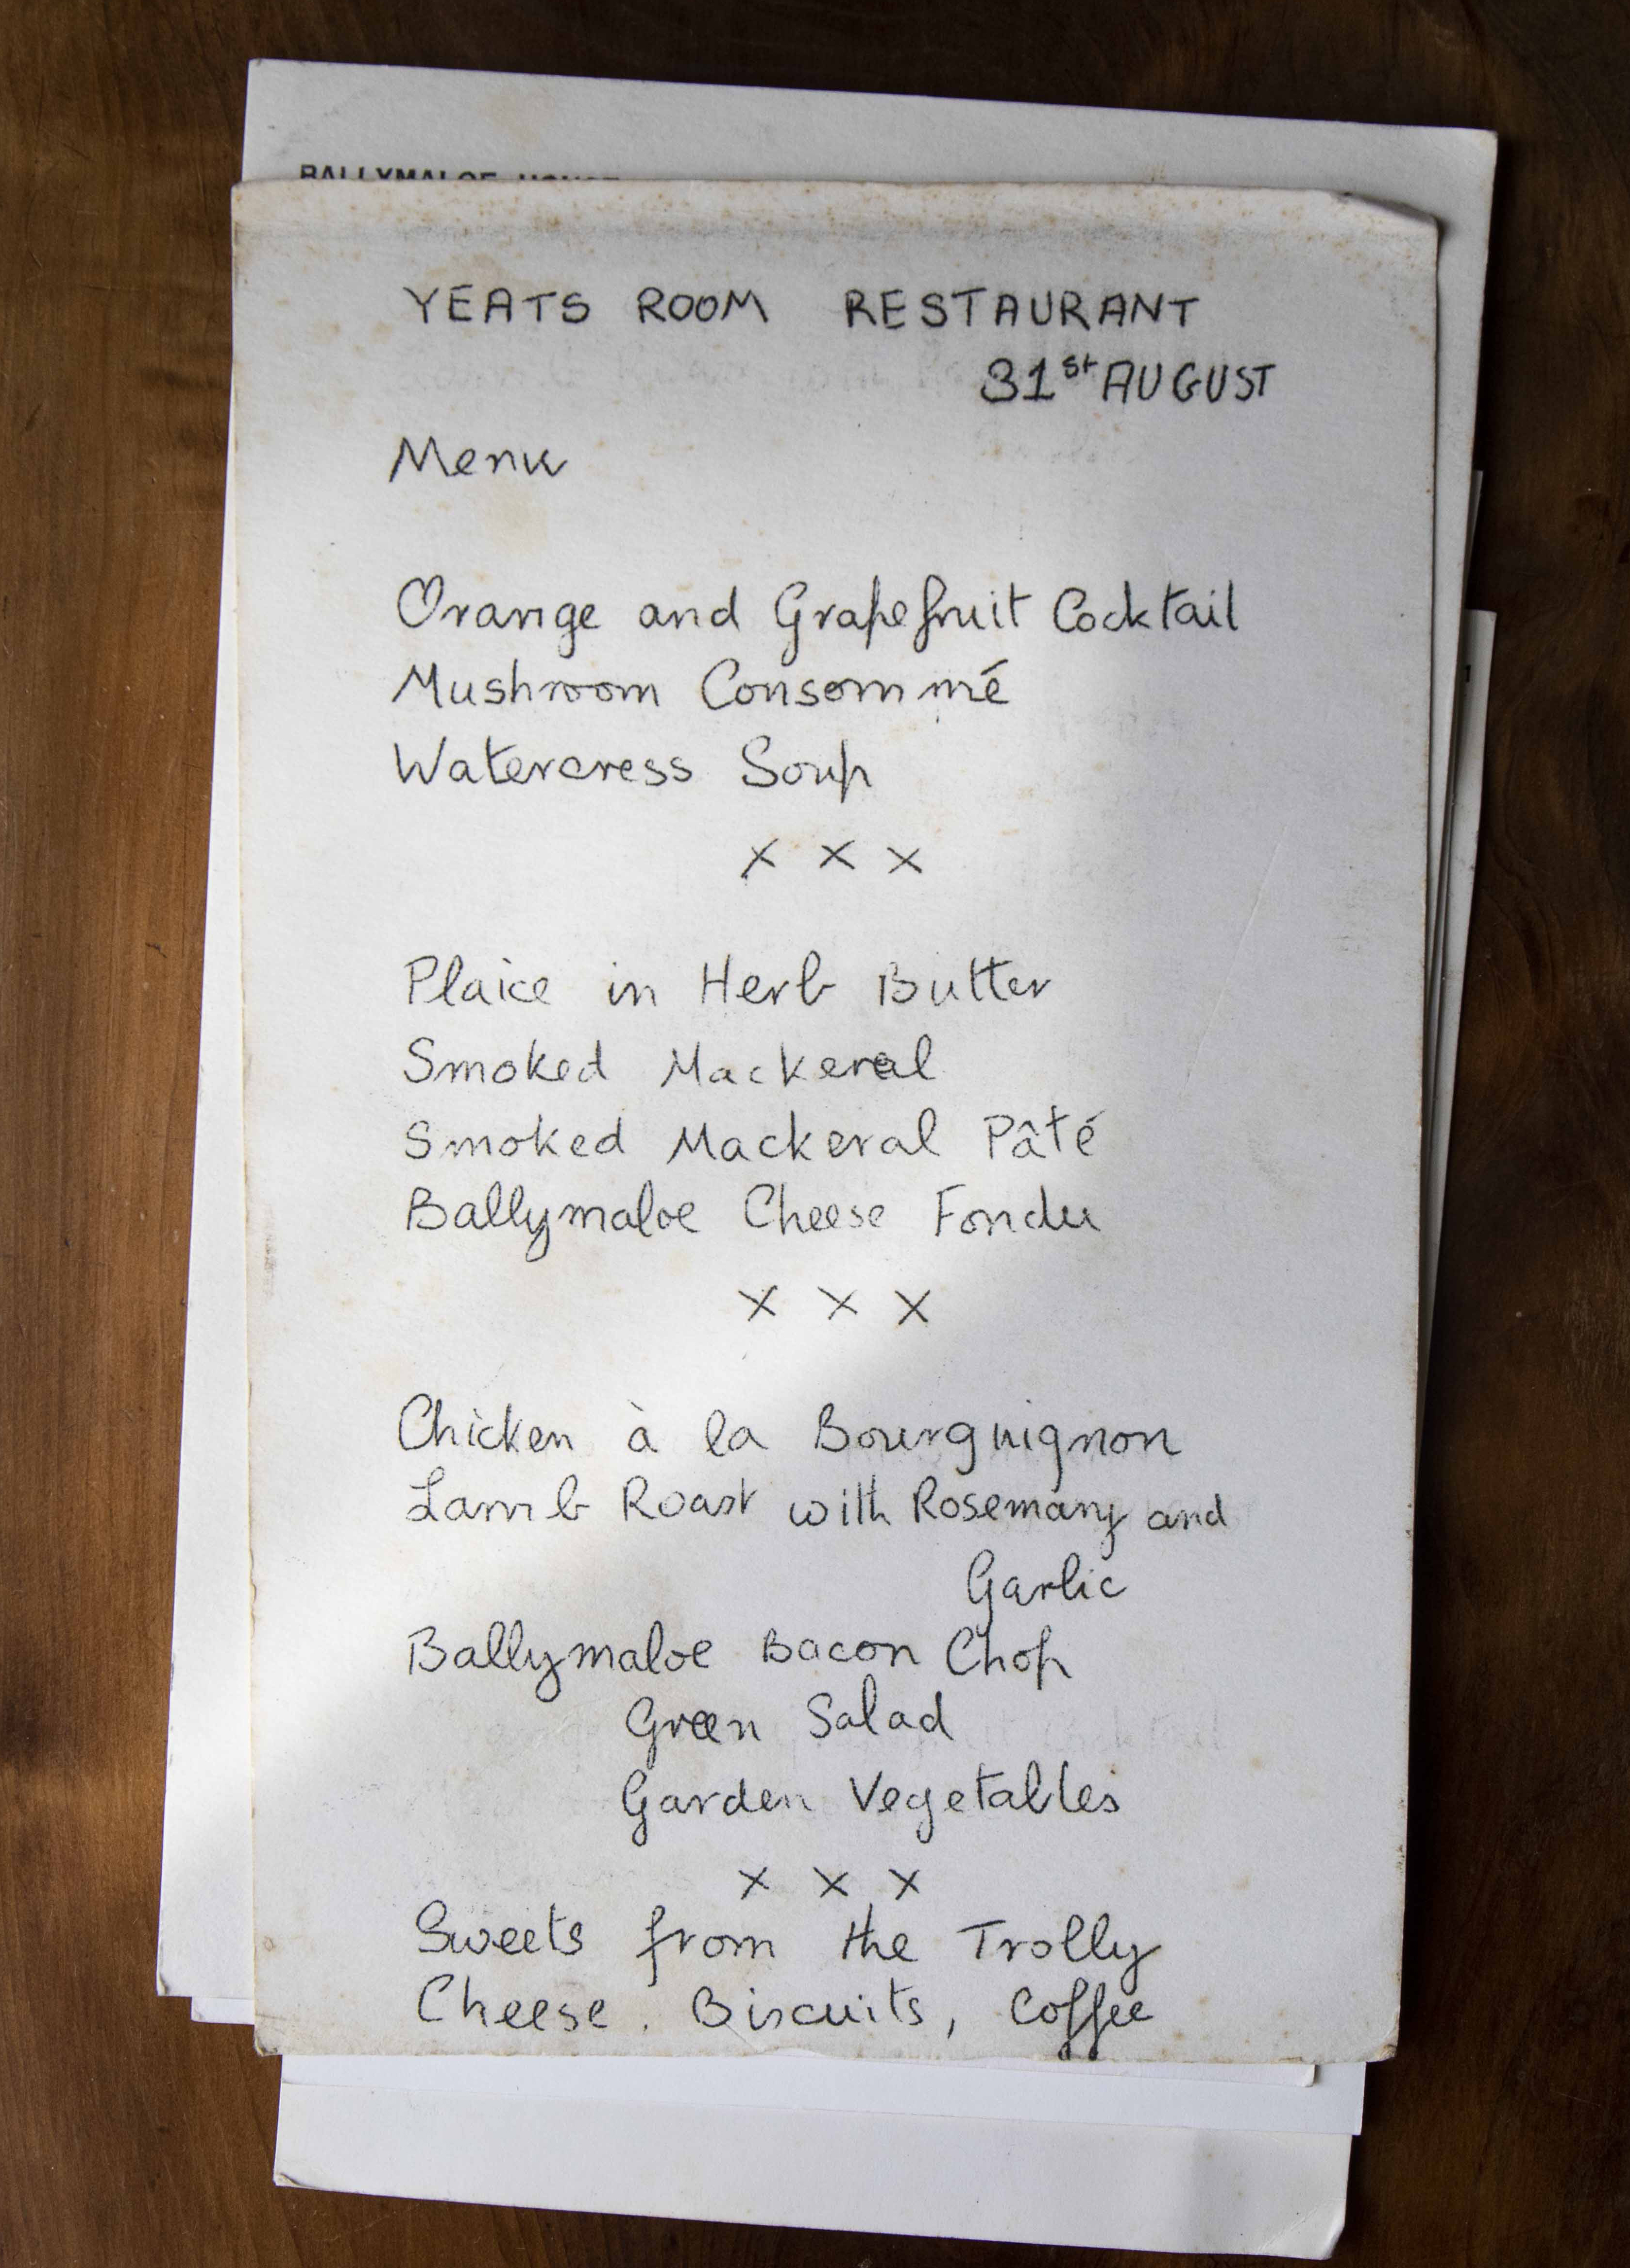 BALLYMALOE HOUSE
YEATS ROOM RESTAURANT
31st AUGUST
Menu
Orange and Grapefruit Cocktail
Mushroom Consommé
Watercress Soup
x x x
Plaice in Herb Butter
Smoked Mackerel
Smoked Mackeral Pâté
Ballymaloe Cheese Fondu
x x x
Chicken à la Bourguignon
Lamb Roast with Rosemary and
Garlic
Ballymaloe Bacon Chop
Green Salad
Garden Vegetables
x x x
Sweets from the Trolly
Cheese. Biscuits, Coffee